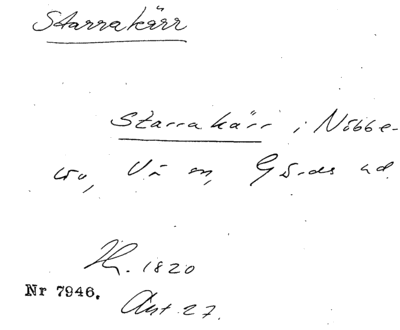 Starrakärr
Starrakärr i Nöbbe-
löv, Vä sn, Gärds hd.
1820
Nr 7946. Akt 27.